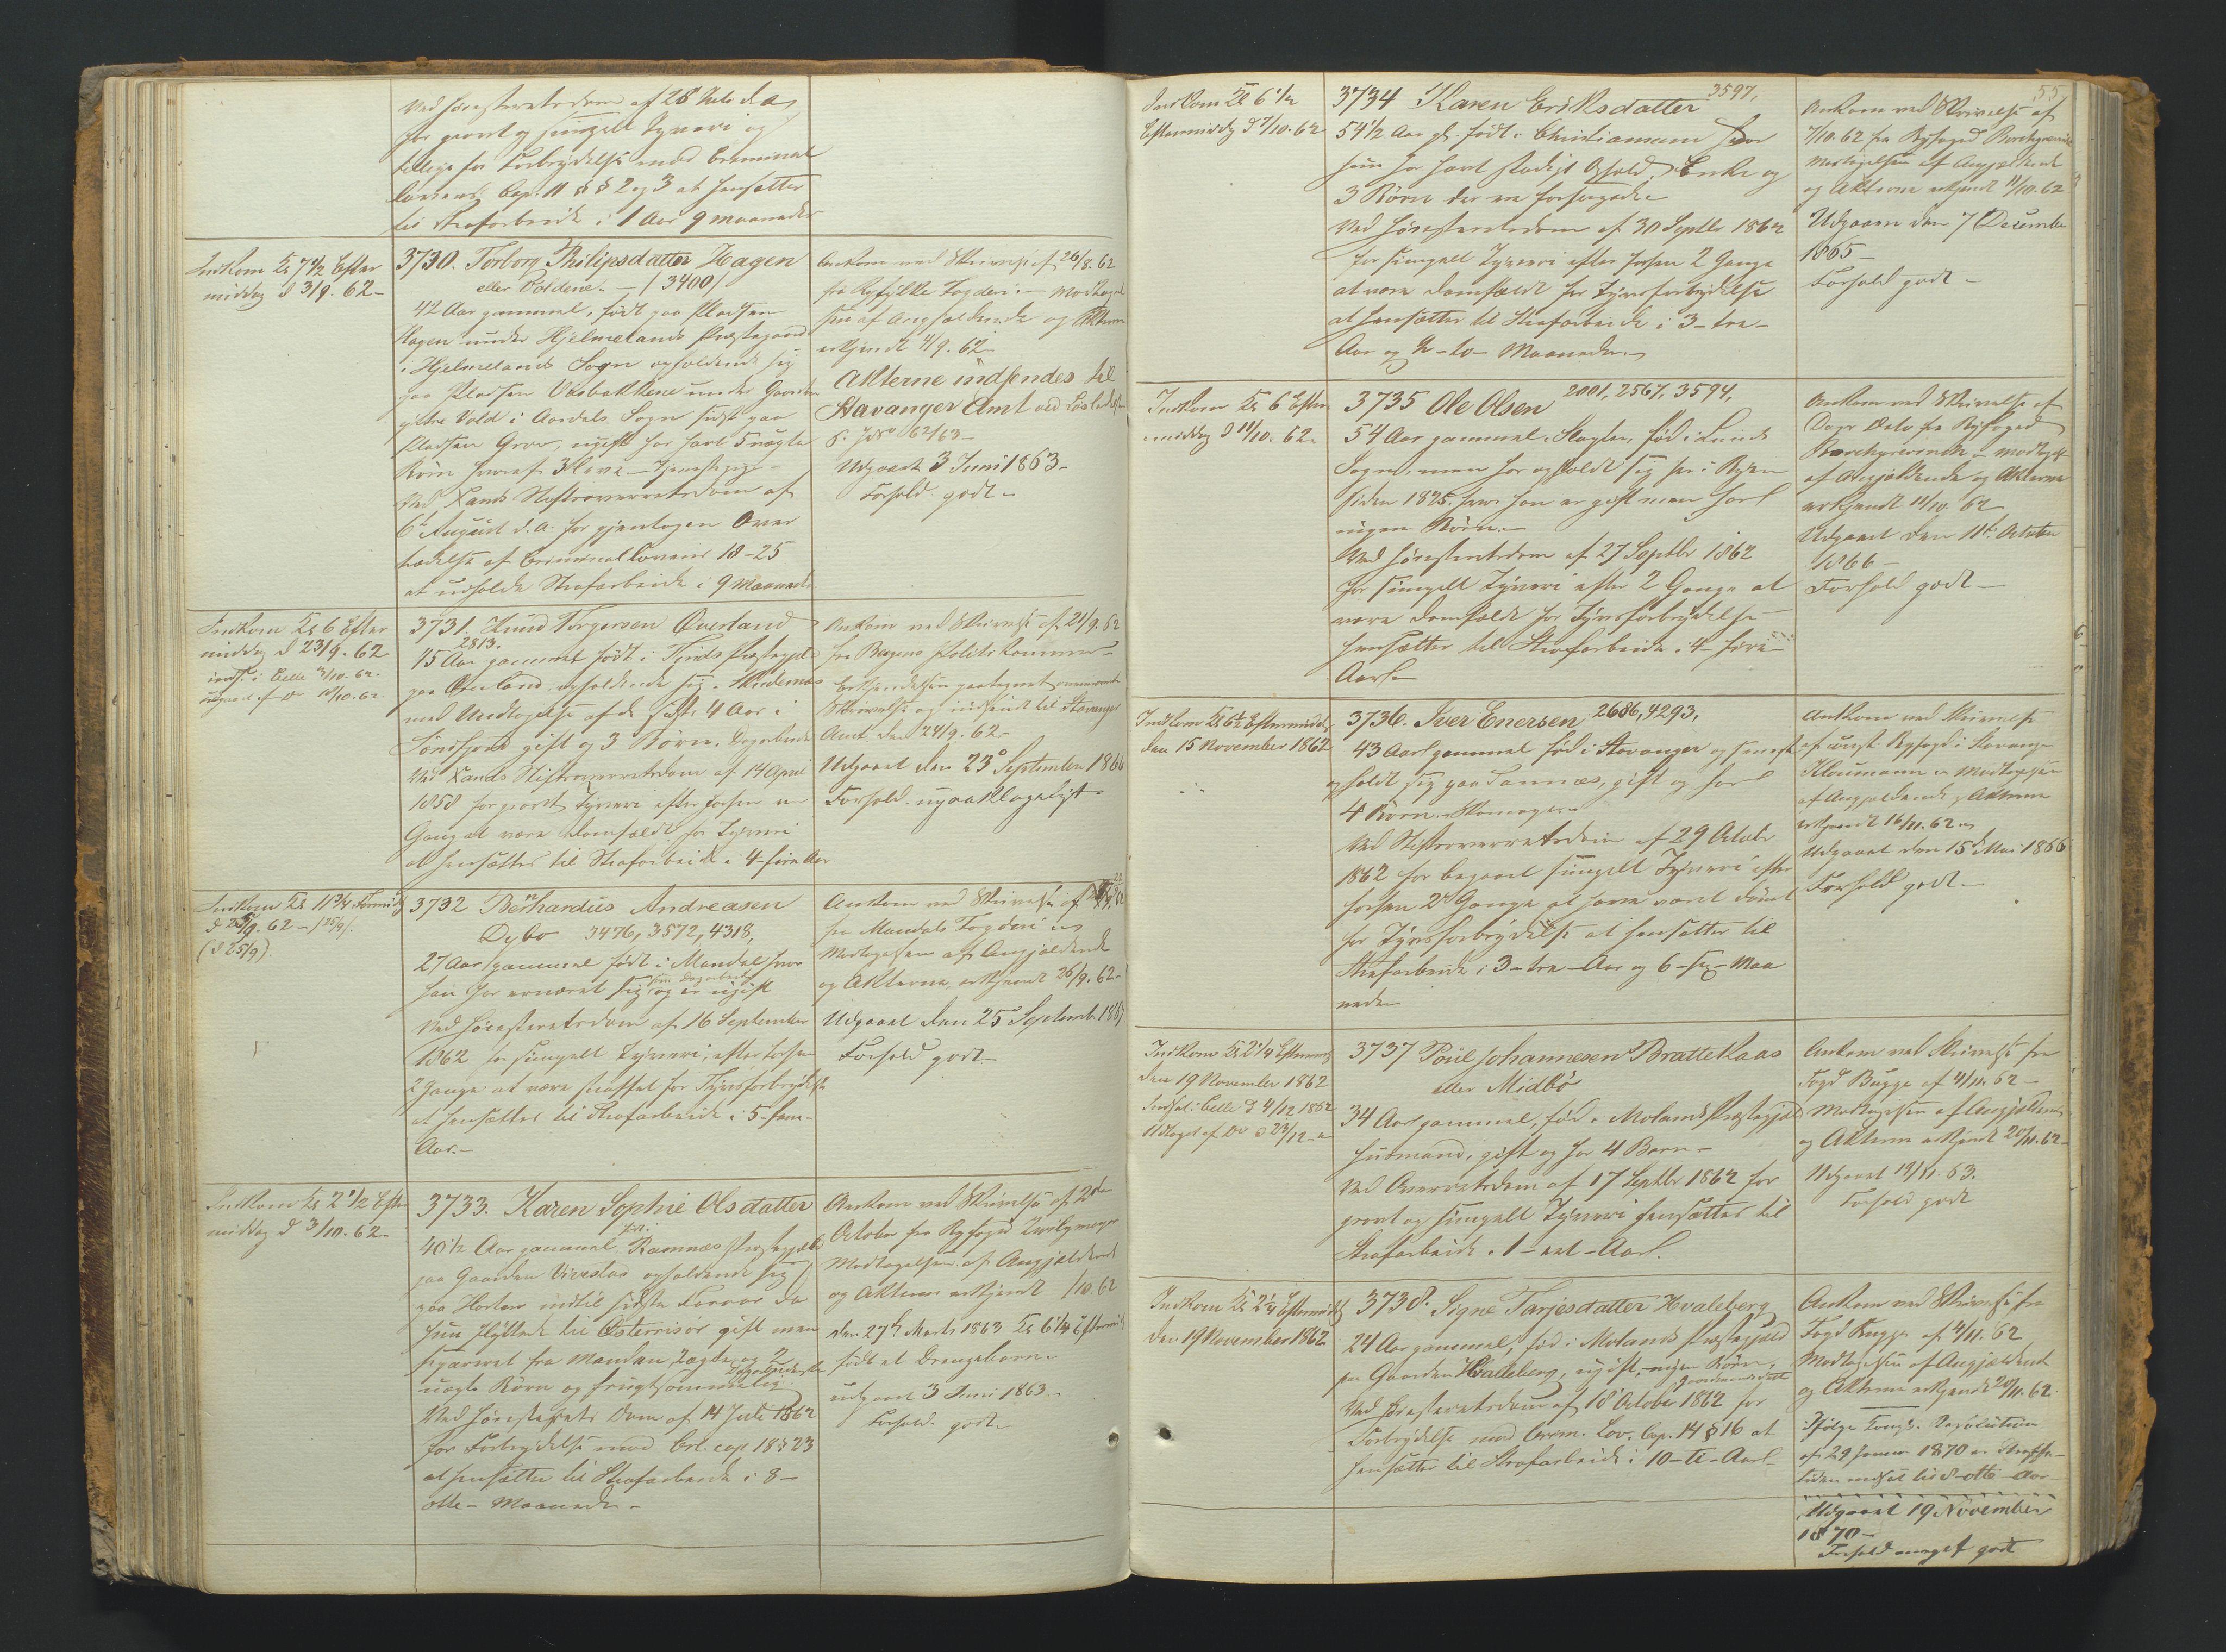 Ved Høiesteretsdom af 28 Juli d. a.
for grovt og simpelt Tyveri og
tillige for Forbrydelse mod Criminal
lovens Cap. 11 §§ 2 og 3 at hensættes
til Strafarbeide i 1 Aar 9 Maaneder
Indkom Kl 7 1/2 Efter
middag d 3/9. 62-
3730. Torborg Philipsdatter Hagen
eller Voldene. - /3400/
42 Aar gammel, født paa Pladsen
Hagen under Hjelmelands Præstegaard
i Hjelmelands Sogn opholdende sig
paa Pladsen Vasbakkene under Gaarden
ytre Vold i Aardals Sogn sidst paa
Pladsen Grov, ugift har havt 5 uægte
Børn hvoraf 3 leve - Tjenestepige -
Ved Xands Stiftsoverretsdom af
6te August d. a. for gjentagen Over
trædelse af Criminallovens 18-25
at udholde Strafarbeide i 9 Maaneder
Ankom ved Skrivelse af 26/8. 62
fra Ryfylke Fogderi. - Modtagel
sen af Angjældende og Akterne
erkjendt 4/9. 62-
Akterne indsendes til
Stavanger Amt ved Løsladelsen
s. J No 62/63-
Udgaaet 3 Juni 1863-
Forhold godt -
Indkom Kl 6 Efter
middag d 23/9. 62
inds. i Celle 3/10. 62.
udgaaet af Do 18/10. 62.
3731. Knud Torgersen Øverland
2813.
45 Aar gammel født i Tinds Præstegjeld
paa Øverland, opholdende sig i Skudenæs
med Undtagelse af de sidste 4 Aar i
Søndfjord gift og 3 Børn. Dagarbeider
Ved Xands Stiftsoverretsdom af 14 April
1858 for grovt Tyveri efter forhen en
Gang at være domfældt for Tyveri
at hensættes til Strafarbeide i 4-fire Aar
Ankom ved Skrivelse af 21/9. 62
fra Bergens Politikammer -
Erkjendelsen paategnet
Skrivelse og indsendt til Stavanger
Amt den 24/9. 62-
Udgaaet den 23de September 1866
Forhold upaaklageligt -
Indkom Kl 11 3/4 Formid
d 25/9. 62 - /25/9/.
(d 25/9).
3732 Bernhardus Andreasen
Dybo 3476, 3572, 4318,
27 Aar gammel født i Mandal hvor
han har ernæret sig som Dagarbeider og er ugift
Ved Høiesteretsdom af 16 September
1862 for simpelt Tyveri, efter forhen
2 Gange at være straffet for Tyvsforbrydelse
at hensættes til Strafarbeide i 5-fem-
Aar.-
Ankom ved Skrivelse af
fra Mandals Fogderi
Modtagelsen af Angjældende
og Akterne erkjendt 26/9. 62-
Udgaaet den 25de Septemb. 1867
Forhold godt -
Indkom Kl 2 1/2 Efter
middag d 3/10. 62-
3733. Karen Sophie Olsdatter
40 1/2 Aar gammel, født i Ramnæs Præstegjeld
paa Gaarden Vivestad opholdende sig
paa Horten indtil sidste Foraar da
hun flyttede til Østerrisør gift men
separeret fra Manden 2 ægte og 2
uægte Børn og frugtsommelig. Dagarbeiderske
Ved Høiesterets Dom af 14 Juli 1862
for Forbrydelse mod Crl. cap 18 § 23
at hensættes til Strafarbeide i 8-
otte- Maaneder -
Ankom ved Skrivelse af 2den
October fra Byfoged
Modtagelsen af Angjældende
og Akterne erkjendt /10. 62
Den 27de Marts 1863 Kl 6 1/4 Eftermid
født et Drengebarn -
udgaaet 3 Juni 1863.
Forhold godt -
Indkom Kl 6 1/2
Eftermiddg d 7/10. 62
3734 Karen Eriksdatter 3597,
54 1/2 Aar gl. født i Christianssand hvor
hun har havt stadigt Ophold. Enke og
3 Børn der ere forsørgede -
Ved Høiesteretsdom af 30 Septbr 1862
for simpelt Tyveri efter forhen 2 Gange
at være domfældt for Tyvsforbrydelse
at hensættes til Strafarbeide i 3-tre-
Aar og 2-to- Maaneder -
55
Ankom ved Skrivelse af
7/10. 62 fra Byfoged Borchgrevink
Modtagelsen af Angjældende
og Akterne erkjendt 11/10. 62
Udgaaen den 7 December
1865-
Forhold godt -
Indkom Kl 6 Efter
middag d 11/10. 62-
3735 Ole Olsen 2001, 2567, 3594,
54 Aar gammel. Slagter, fød i Lunds
Sogn, men har opholdt sig her i Byen
siden 1825, hvor han er gift men har
ingen Børn. -
Ved Høiesteretsdom af 27 Septbr 1862
for simpelt Tyveri efter 2 Gange at
være domfældt for Tyvsforbrydelse
hensættes til Strafarbeide i 4-fire-
Aar -
Ankom ved Skrivelse af
Dags Dato fra Byfoged
Borchgrevink - Modtagelsen
af Angjældende og Akterne
erkjendt 11/10. 62
Udgaaet den 11te October
1866-
Forhold godt -
Indkom Kl 6 1/2 Eftermidd.
den 15 November 1862
3736. Iver Enersen 2686, 4293,
43 Aar gammel fød i Stavanger og senest
opholdt sig paa Sannæs, gift og har
4 Børn - Skomager -
Ved Stiftsoverretsdom af 29 Octobr
1862 for begaaet simpelt Tyveri efter
forhen 2de Gange at have været dømt
for Tyvsforbrydelse at hensættes til
Strafarbeide i 3-tre-Aar og 6-sex-Maa
neder
Ankom ved Skrivelse
af const. Byfoged i Stavanger
Kloumann - Modtagelsen
af Angjældende og Akterne
erkjendt 16/11. 62 -
Udgaaet den 15de Mai 1866
Forhold godt -
Indkom Kl 2 1/4 Eftermid
den 19 November 1862
Indsat i Celle d 4/12 1862
Udtaget af Do d 23/12 -
3737 Poul Johannesen Brattekaas
eller Midbø
34 Aar gammel, fød i Molands Præstegjeld
Husmand, gift og har 4 Børn -
Ved Overretsdom af 17 Septbr 1862 for
grovt og simpelt Tyveri hensættes til
Strafarbeide i 1-eet-Aar.
Ankom ved Skrivelse fra
Fogd Bugge af 4/11. 62 -
Modtagelsen af Angjældende
og Akterne erkjendt 20/11. 62-
Udgaaet 19/11. 63.
Forhold godt
Indkom Kl 2 1/4 Eftermidd
den 19 November 1862
3738. Signe Tarjesdatter Hvaleberg
24 Aar gammel, fød i Molands Præstegjeld
paa Gaarden Hvaleberg, ugift, ingen Børn, Gaardmandsdatter
Ved Høiesteretsdom af 18 October 1862 for
Forbrydelse mod Crim. Lov. Cap. 14 § 16 at
hensættes til Strafarbeide i 10-ti-Aar -
Ankom ved Skrivelse fra
Fogd Bugge af 4/11. 62
Modtagelsen af Angjældende
og Akterne erkjendt 20/11. 62-
Ifølge Kongl. Resolution
af 29 Januar 1870 er Straffe-
tiden nedsat til 8-otte-Aar
Udgaaet 19 November
1870-
Forhold meget godt